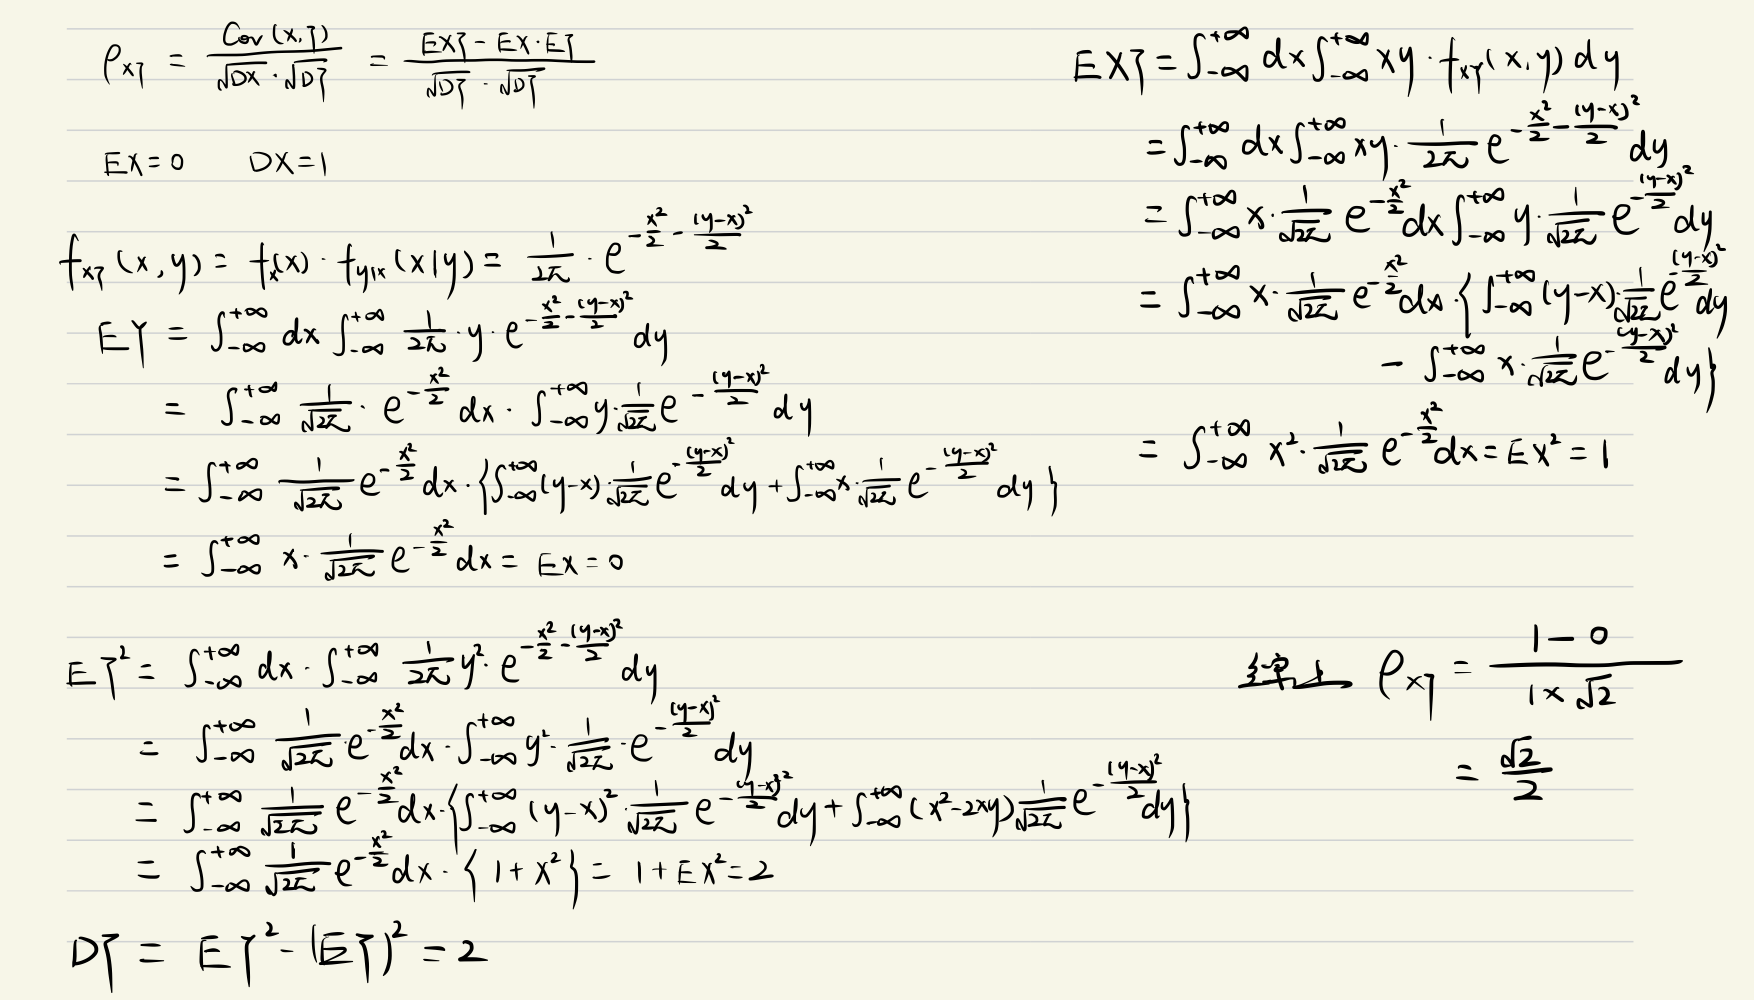 ρ_XY = Cov(X,Y) / (√DX · √DY) = (EXY - EX·EY) / (√DY · √DY)
EX=0 DX=1
f_XY(x,y) = f_X(x) · f_Y|X(x|y) = 1/(2π) · e^(-x²/2 - (y-x)²/2)
EY = ∫_{-∞}^{+∞} dx ∫_{-∞}^{+∞} 1/(2π) · y · e^(-x²/2 - (y-x)²/2) dy
= ∫_{-∞}^{+∞} 1/√(2π) · e^(-x²/2) dx · ∫_{-∞}^{+∞} y · 1/√(2π) e^(-(y-x)²/2) dy
= ∫_{-∞}^{+∞} 1/√(2π) e^(-x²/2) dx · {∫_{-∞}^{+∞} (y-x) · 1/√(2π) e^(-(y-x)²/2) dy + ∫_{-∞}^{+∞} x · 1/√(2π) e^(-(y-x)²/2) dy}
= ∫_{-∞}^{+∞} x · 1/√(2π) e^(-x²/2) dx = EX = 0
EY² = ∫_{-∞}^{+∞} dx · ∫_{-∞}^{+∞} 1/(2π) y² · e^(-x²/2 - (y-x)²/2) dy
= ∫_{-∞}^{+∞} 1/√(2π) · e^(-x²/2) dx · ∫_{-∞}^{+∞} y² · 1/√(2π) · e^(-(y-x)²/2) dy
= ∫_{-∞}^{+∞} 1/√(2π) e^(-x²/2) dx · {∫_{-∞}^{+∞} (y-x)² · 1/√(2π) e^(-(y-x)²/2) dy + ∫_{-∞}^{+∞} (x²-2xy) 1/√(2π) e^(-(y-x)²/2) dy}
= ∫_{-∞}^{+∞} 1/√(2π) e^(-x²/2) dx · {1+x²} = 1+EX²=2
DY = EY² - (EY)² = 2
EXY = ∫_{-∞}^{+∞} dx ∫_{-∞}^{+∞} xy · f_XY(x,y) dy
= ∫_{-∞}^{+∞} dx ∫_{-∞}^{+∞} xy · 1/(2π) e^(-x²/2 - (y-x)²/2) dy
= ∫_{-∞}^{+∞} x · 1/√(2π) e^(-x²/2) dx ∫_{-∞}^{+∞} y · 1/√(2π) e^(-(y-x)²/2) dy
= ∫_{-∞}^{+∞} x · 1/√(2π) e^(-x²/2) dx · {∫_{-∞}^{+∞} (y-x) · 1/√(2π) e^(-(y-x)²/2) dy
- ∫_{-∞}^{+∞} x · 1/√(2π) e^(-(y-x)²/2) dy}
= ∫_{-∞}^{+∞} x² · 1/√(2π) e^(-x²/2) dx = EX² = 1
综上 ρ_XY = (1-0) / (1×√2)
= √2/2